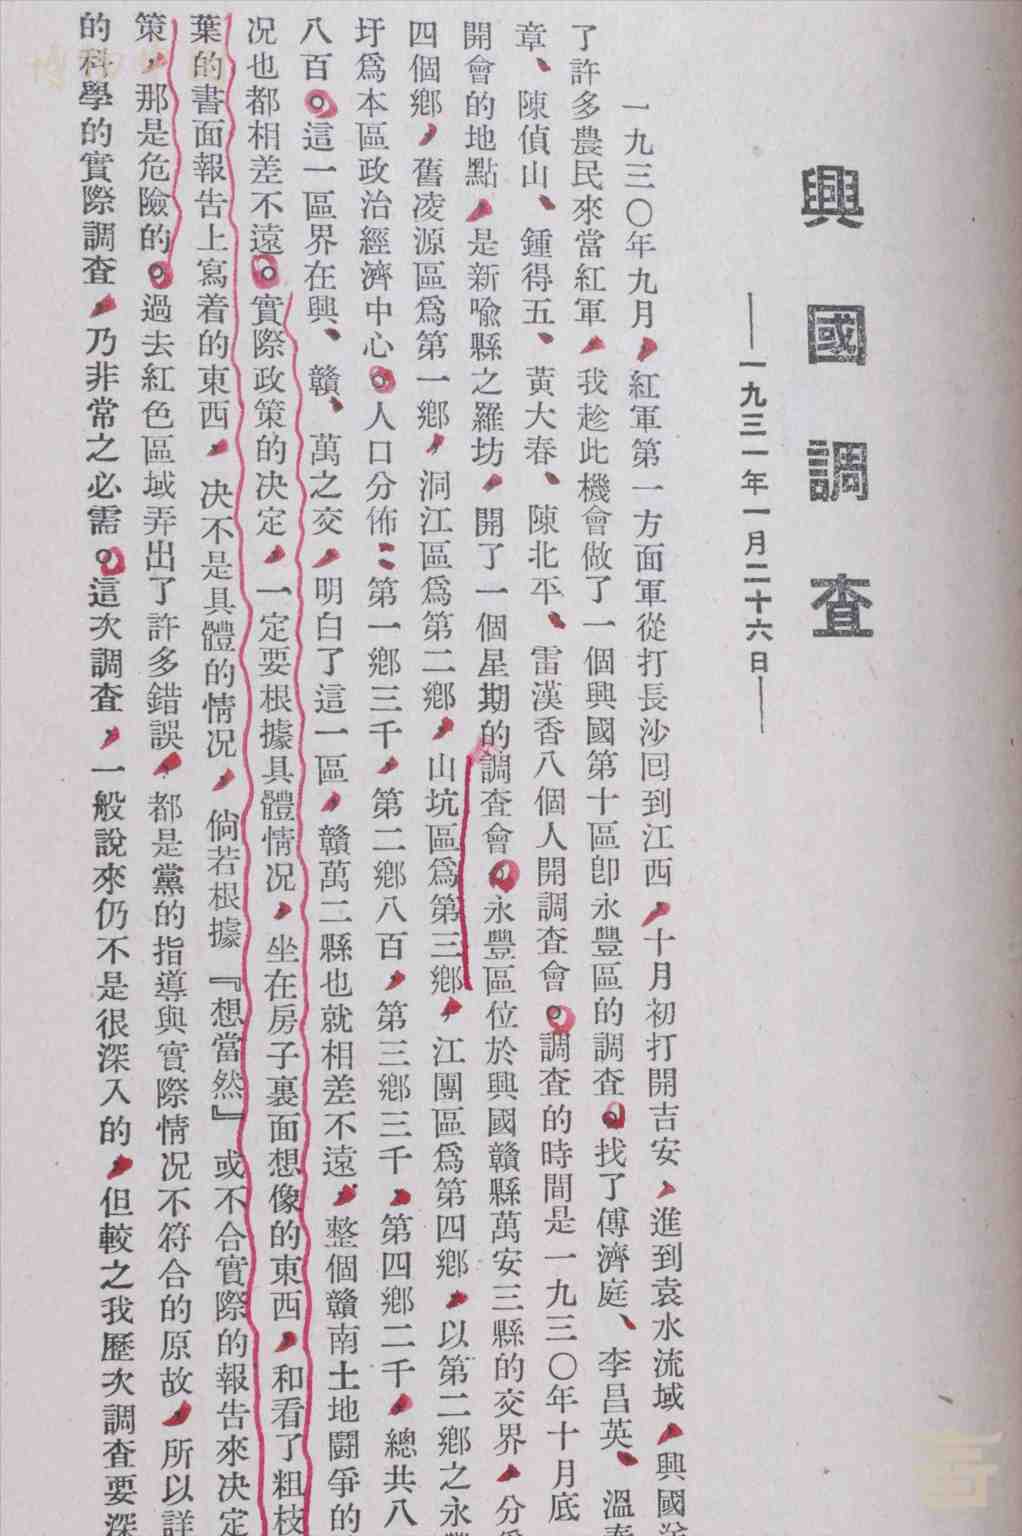 興國調查
——一九三一年一月二十六日——
一九三〇年九月，紅軍第一方面軍從打長沙回到江西，十月初打開吉安，進到袁水流域，興國
了許多農民來當紅軍，我趁此機會做了一個興國第十區卽永豐區的調查。找了傅濟庭、李昌英、溫
章、陳偵山、鍾得五、黃大春、陳北平、雷漢香八個人開調查會。調查的時間是一九三〇年十月底
開會的地點，是新喩縣之羅坊，開了一個星期的調查會。永豐區位於興國贛縣萬安三縣的交界，分
四個鄕，舊凌源區爲第一鄕，洞江區爲第二鄕，山坑區爲第三鄕，江團區爲第四鄕，以第二鄕之永
圩爲本區政治經濟中心。人口分佈：第一鄕三千，第二鄕八百，第三鄕三千，第四鄕二千，總共八
八百。這一區界在興、贛、萬之交，明白了這一區，贛萬二縣也就相差不遠，整個贛南土地鬪爭的
况也都相差不遠。實際政策的决定，一定要根據具體情况，坐在房子裏面想像的東西，和看了粗枝
葉的書面報告上寫着的東西，决不是具體的情况，倘若根據『想當然』或不合實際的報告來决定
策，那是危險的。過去紅色區域弄出了許多錯誤，都是黨的指導與實際情况不符合的原故，所以詳
的科學的實際調查，乃非常之必需。這次調查，一般說來仍不是很深入的，但較之我歷次調查要深